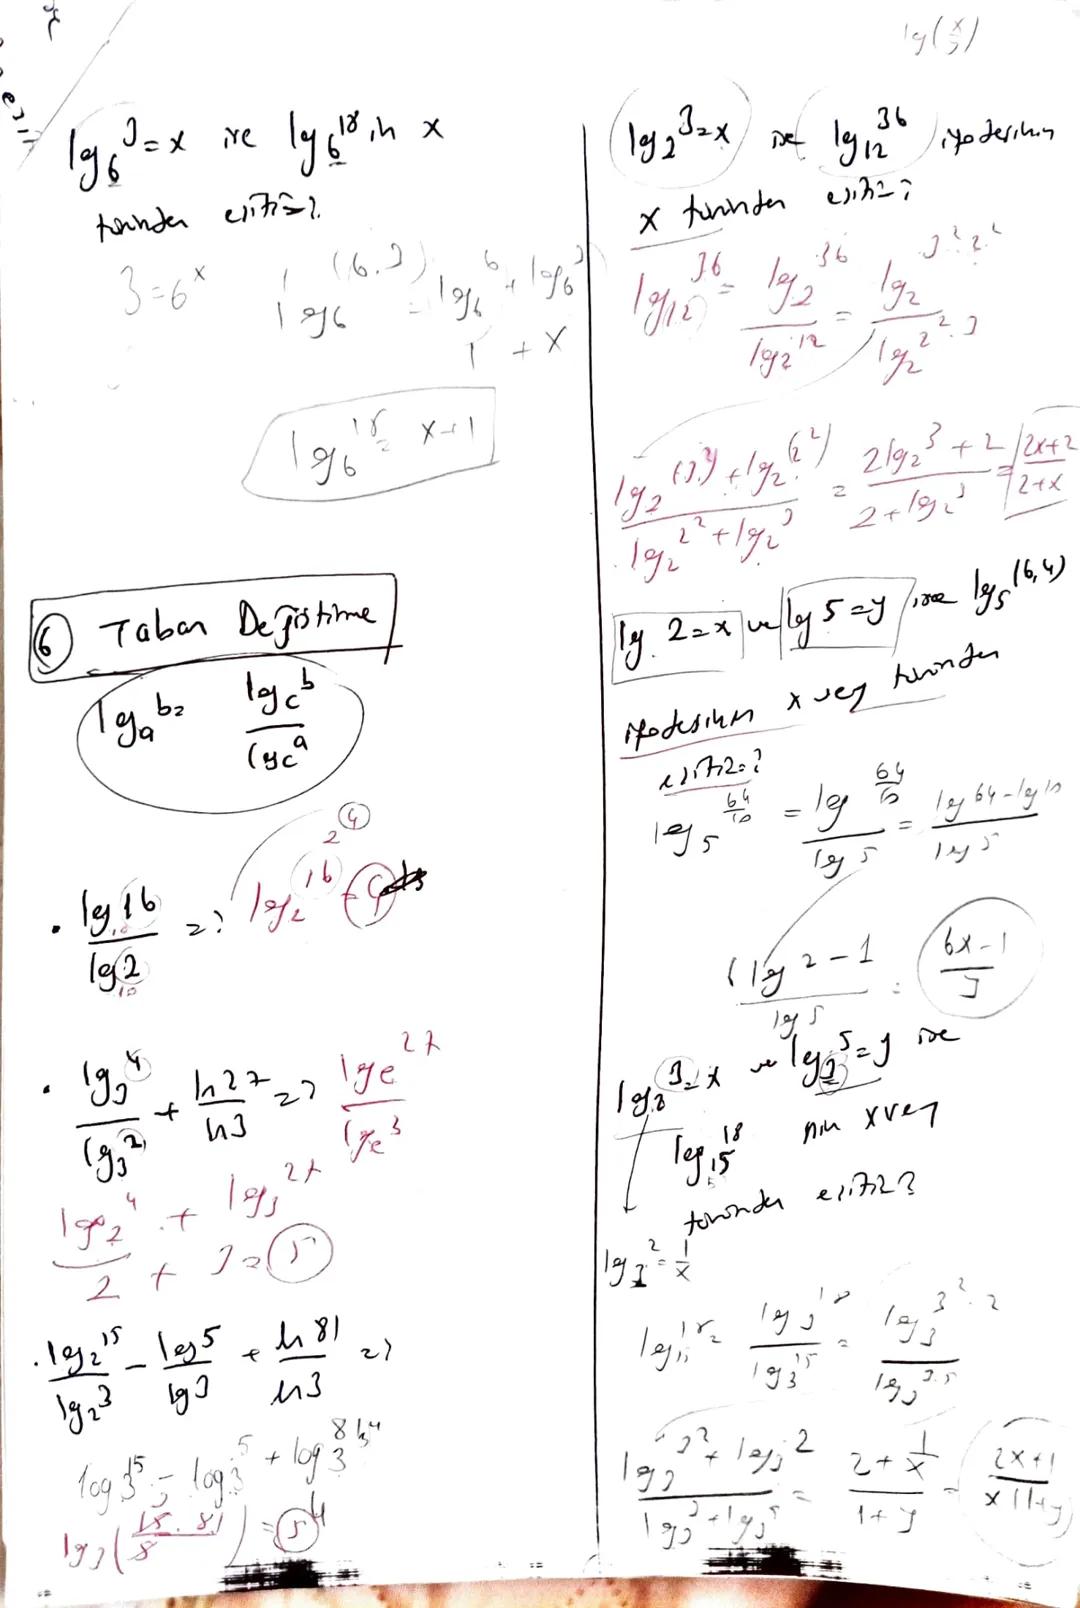 log₆3 = x ise log₆18 in x
türünden eşiti=?
3=6ˣ log₆(6.3) = log₆6 + log₆3
1 + x
log₆18 = x+1
6 Taban Değiştirme
logₐb = log_c b / log_c a
• log 16 / log 2 = ? log₂16 = 4
2⁴
• log₃4 / log₃2 + ln27 / ln3 = ? logₑ27 / logₑ3
log₂4 + log₃27
2 + 3 = 5
• log₂15 / log₂3 - log5 / log3 + ln81 / ln3 = ?
log₃15 - log₃5 + log₃81 3⁴
log₃(15.81 / 5) = 5
log(x/y)
log₂3=x ise log₁₂36 ifadesinin
x türünden eşiti=?
log₁₂36 = log₂36 / log₂12 = log₂3².2² / log₂2².3
log₂(3²)+log₂(2²) / log₂2²+log₂3 = 2log₂3+2 / 2+log₂3 = 2x+2 / 2+x
log 2=x ve log 5=y ise log₅(6,4)
ifadesinin x ve y türünden
eşiti=?
log₅ 64/10 = log 64/10 / log 5 = log64-log10 / log5
6log2-1 / log5 = 6x-1 / y
log₂3=x ve log₃5=y ise
log₁₅18 nin x ve y
türünden eşiti=?
log₃2=1/x
log₁₅18 = log₃18 / log₃15 = log₃3².2 / log₃3.5
log₃3²+log₃2 / log₃3+log₃5 = 2+1/x / 1+y = 2x+1 / x(1+y)